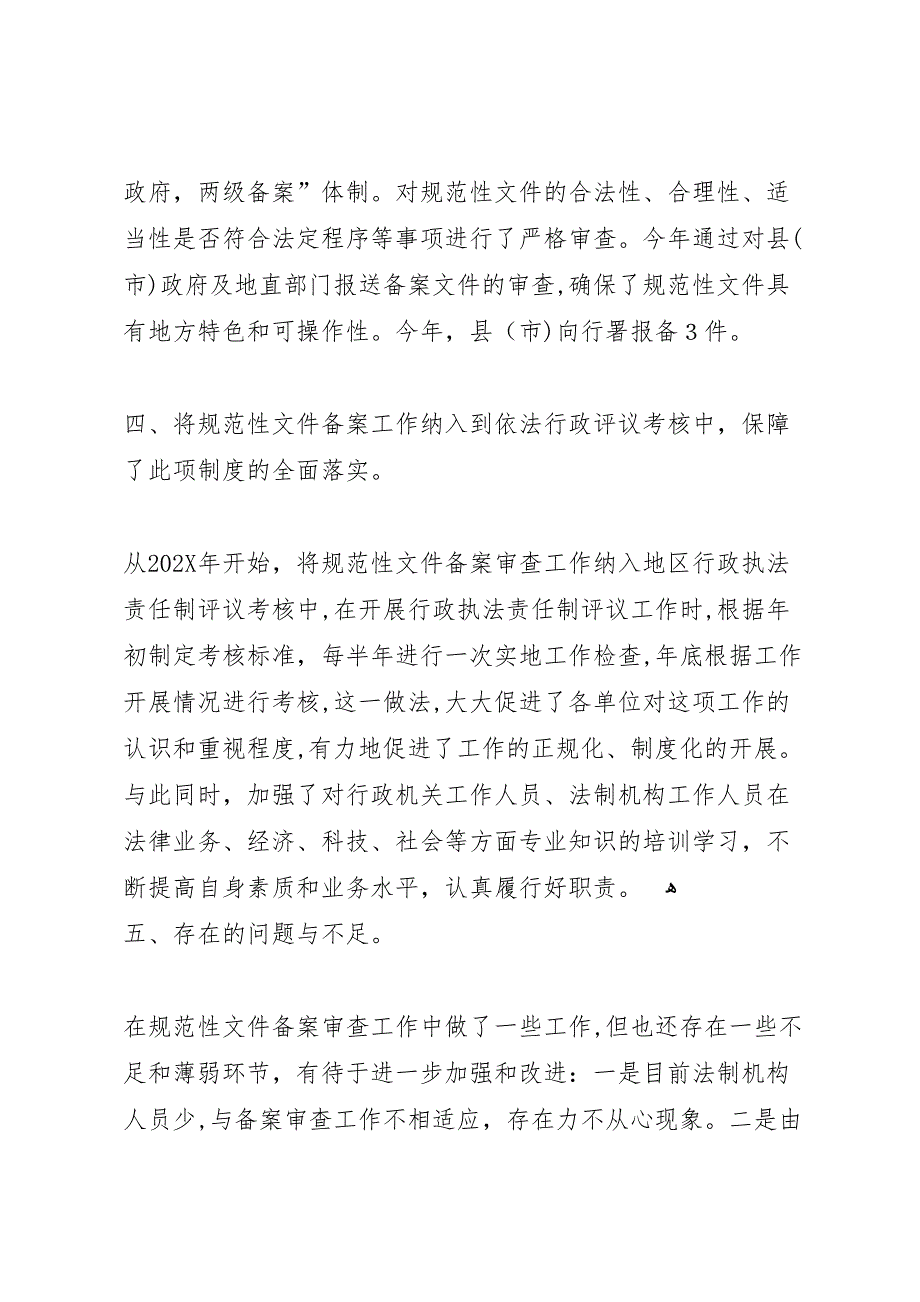 政府，两级备案”体制。对规范性文件的合法性、合理性、适
当性是否符合法定程序等事项进行了严格审查。今年通过对县(
市)政府及地直部门报送备案文件的审查,确保了规范性文件具
有地方特色和可操作性。今年，县（市)向行署报备3件。
四、将规范性文件备案工作纳入到依法行政评议考核中，保障
了此项制度的全面落实。
从202X年开始，将规范性文件备案审查工作纳入地区行政执法
责任制评议考核中,在开展行政执法责任制评议工作时,根据年
初制定考核标准，每半年进行一次实地工作检查,年底根据工作
开展情况进行考核,这一做法,大大促进了各单位对这项工作的
认识和重视程度,有力地促进了工作的正规化、制度化的开展。
与此同时，加强了对行政机关工作人员、法制机构工作人员在
法律业务、经济、科技、社会等方面专业知识的培训学习，不
断提高自身素质和业务水平，认真履行好职责。 ﻫ
五、存在的问题与不足。
在规范性文件备案审查工作中做了一些工作,但也还存在一些不
足和薄弱环节，有待于进一步加强和改进：一是目前法制机构
人员少,与备案审查工作不相适应，存在力不从心现象。二是由